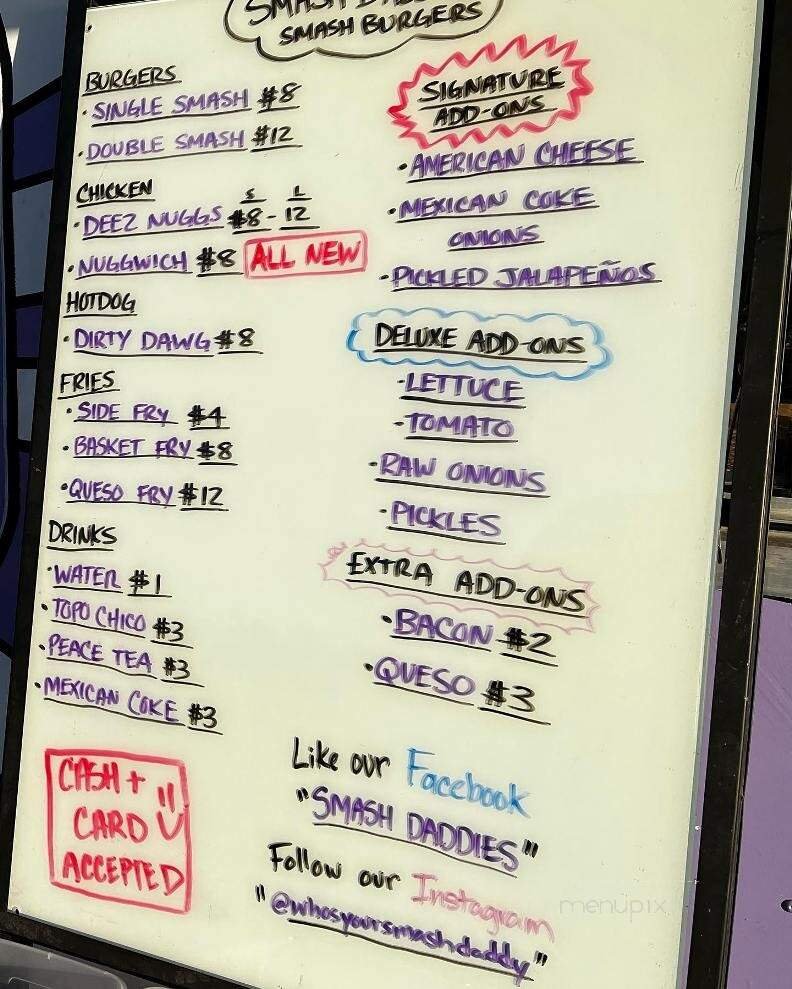 SMASH
SMASH BURGERS
BURGERS
• SINGLE SMASH $8
• DOUBLE SMASH $12
CHICKEN S L
• DEEZ NUGGS $8 - 12
• NUGGWICH $8 ALL NEW
HOTDOG
• DIRTY DAWG $8
FRIES
• SIDE FRY $4
• BASKET FRY $8
• QUESO FRY $12
DRINKS
• WATER $1
• TOPO CHICO $3
• PEACE TEA $3
• MEXICAN COKE $3
CASH +
CARD
ACCEPTED
SIGNATURE
ADD-ONS
• AMERICAN CHEESE
• MEXICAN COKE
ONIONS
• PICKLED JALAPEÑOS
DELUXE ADD-ONS
• LETTUCE
• TOMATO
• RAW ONIONS
• PICKLES
EXTRA ADD-ONS
• BACON $2
• QUESO $3
Like our Facebook
"SMASH DADDIES"
Follow our Instagram
"@whosyoursmashdaddy"
menupix